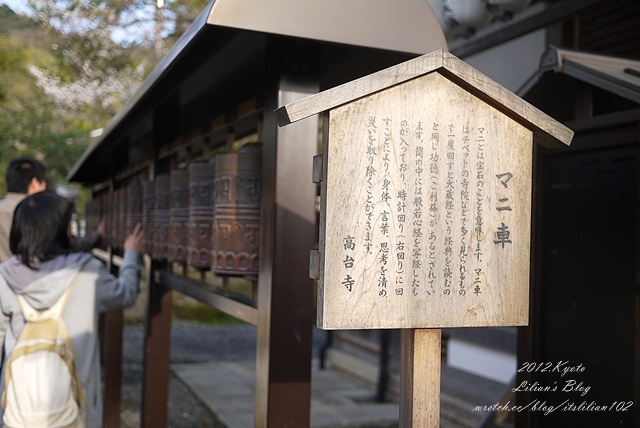 マニ車
マニとは宝石のことを意味します。マニ車
はチベットの寺院などで多く見られるもの
で一度回すと大蔵経という経典を読むの
と同じ功徳(ご利益)があるとされてい
ます。筒の中には般若心経を写経したも
のが入っており、時計回り(右回り)に回
すことにより、身体、言葉、思考を清め、
災いを取り除くことができます。
高台寺
2012.Kyoto
Lilian's Blog
wretch.cc/blog/itslilian102